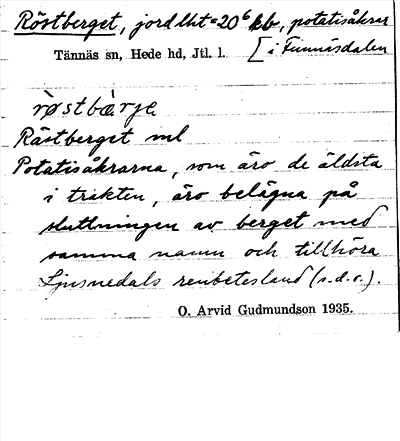 Röstberget, jordlht=20⁶ kb, potatisåkrar
Tännäs sn, Hede hd, Jtl. l. [i Funnäsdalen
røstbærje
Röstberget ml
Potatisåkrarna, som äro de äldsta
i trakten, äro belägna på
sluttningen av berget med
samma namn och tillhöra
Ljusnedals renbetesland (s.d.o.).
O. Arvid Gudmundson 1935.